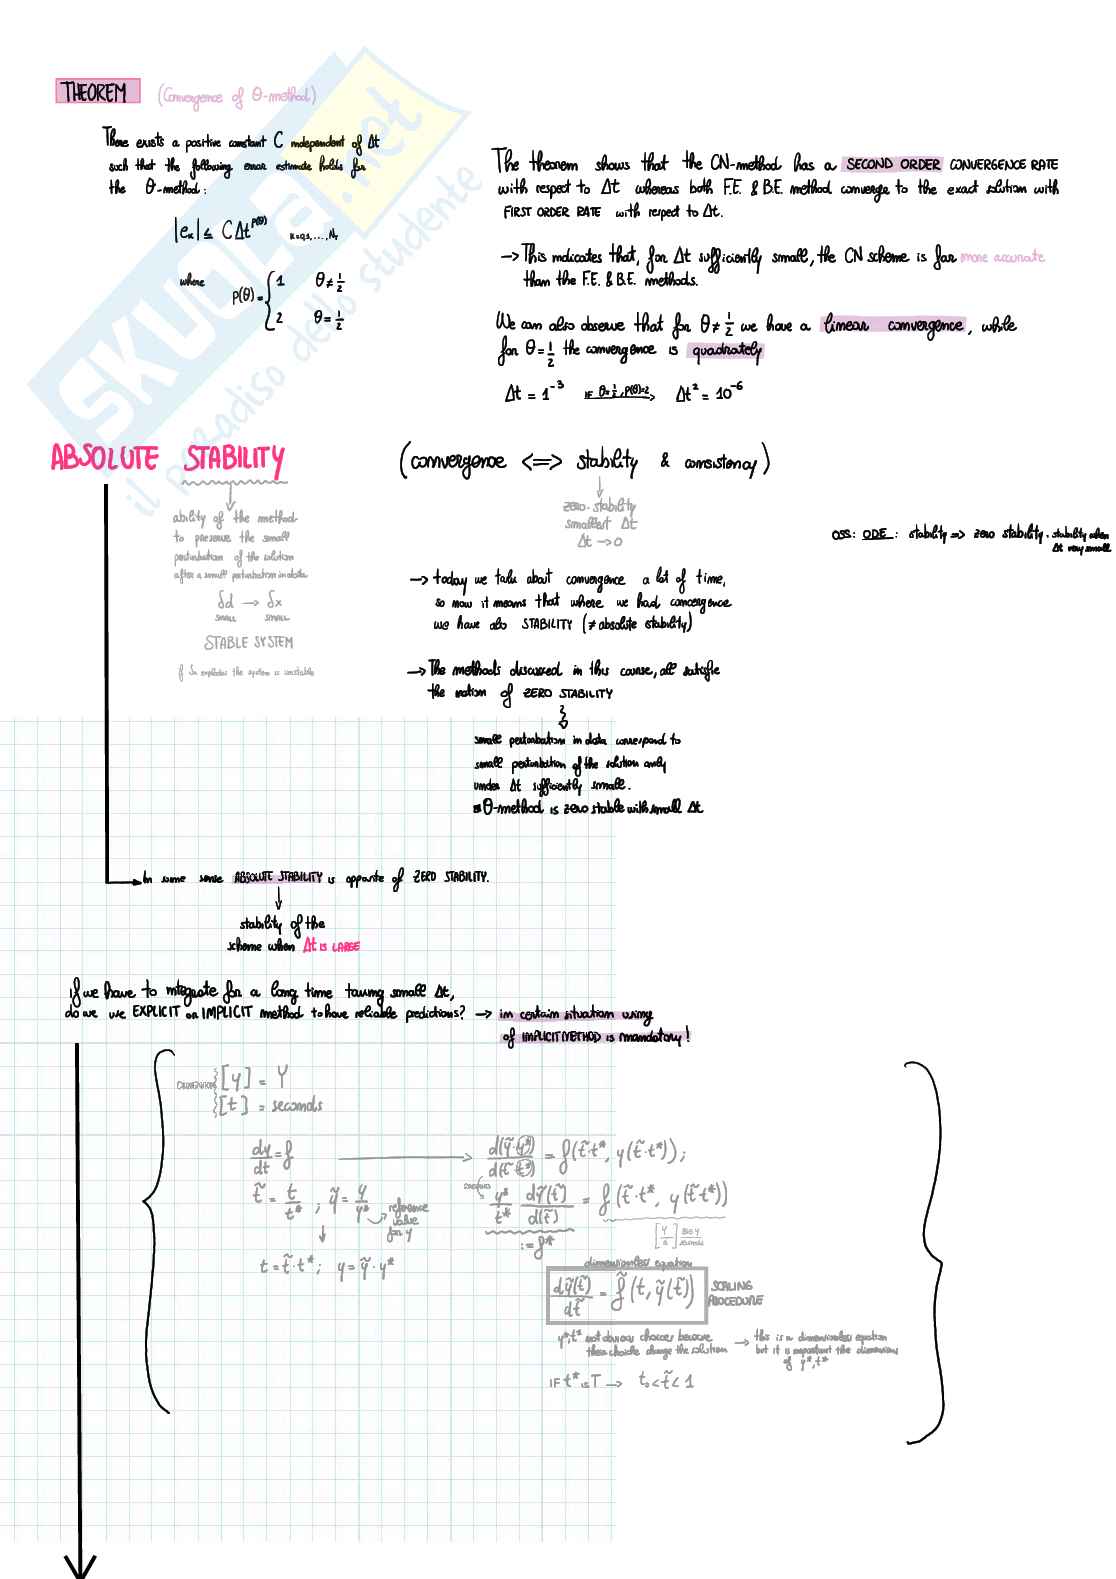 THEOREM (Convergence of θ-method)
There exists a positive constant C independent of Δt
such that the following error estimate holds for
the θ-method:
|eₖ| ≤ CΔt^P(θ) k=0,1,...,Nₜ
where P(θ) = { 1 θ≠1/2
2 θ=1/2
The theorem shows that the CN-method has a SECOND ORDER CONVERGENCE RATE
with respect to Δt whereas both F.E. & B.E. method converge to the exact solution with
FIRST ORDER RATE with respect to Δt.
→ This indicates that, for Δt sufficiently small, the CN scheme is far more accurate
than the F.E. & B.E. methods.
We can also observe that for θ≠1/2 we have a linear convergence, while
for θ=1/2 the convergence is quadrately
Δt = 1⁻³ IF θ=1/2, P(θ)=2 → Δt² = 10⁻⁶
SKUOLA.net
il paradiso dello studente
ABSOLUTE STABILITY
ability of the method
to preserve the small
perturbation of the solution
after a small perturbation in data
δd → δx
SMALL SMALL
STABLE SYSTEM
if δx explodes the system is unstable
(convergence <=> stability & consistency)
zero-stability
smallest Δt
Δt → 0
OSS: ODE: stability => zero stability · stability when
Δt very small
→ today we talk about convergence a lot of time,
so now it means that where we had convergence
we have also STABILITY (≠ absolute stability)
→ The methods discussed in this course, all satisfie
the notion of ZERO STABILITY
small perturbation in data correspond to
small perturbation of the solution only
under Δt sufficiently small.
θ-method is zero stable with small Δt
In some sense ABSOLUTE STABILITY is opposite of ZERO STABILITY.
stability of the
scheme when Δt IS LARGE
if we have to integrate for a long time taking small Δt,
do we use EXPLICIT or IMPLICIT method to have reliable predictions? → in certain situation using
of IMPLICIT METHOD is mandatory!
[y] = Y
[t] = seconds
dy/dt = f → d(ỹ·y*)/d(t̃·t*) = f(t̃·t*, y(t̃·t*));
t̃ = t/t* ; ỹ = y/y* reference
value
for y
y*/t* dỹ(t̃)/d(t̃) = f(t̃·t*, y(t̃t*))
:= f*
t = t̃·t* ; y = ỹ·y*
dimensionless equation
dỹ(t̃)/dt̃ = f̃(t, ỹ(t̃)) SCALING
PROCEDURE
y*,t* not obvious choices because
their choice change the solution → this is a dimensionless equation
but it is important the dimension
of y*,t*
IF t* is T → t₀ < t̃ < 1